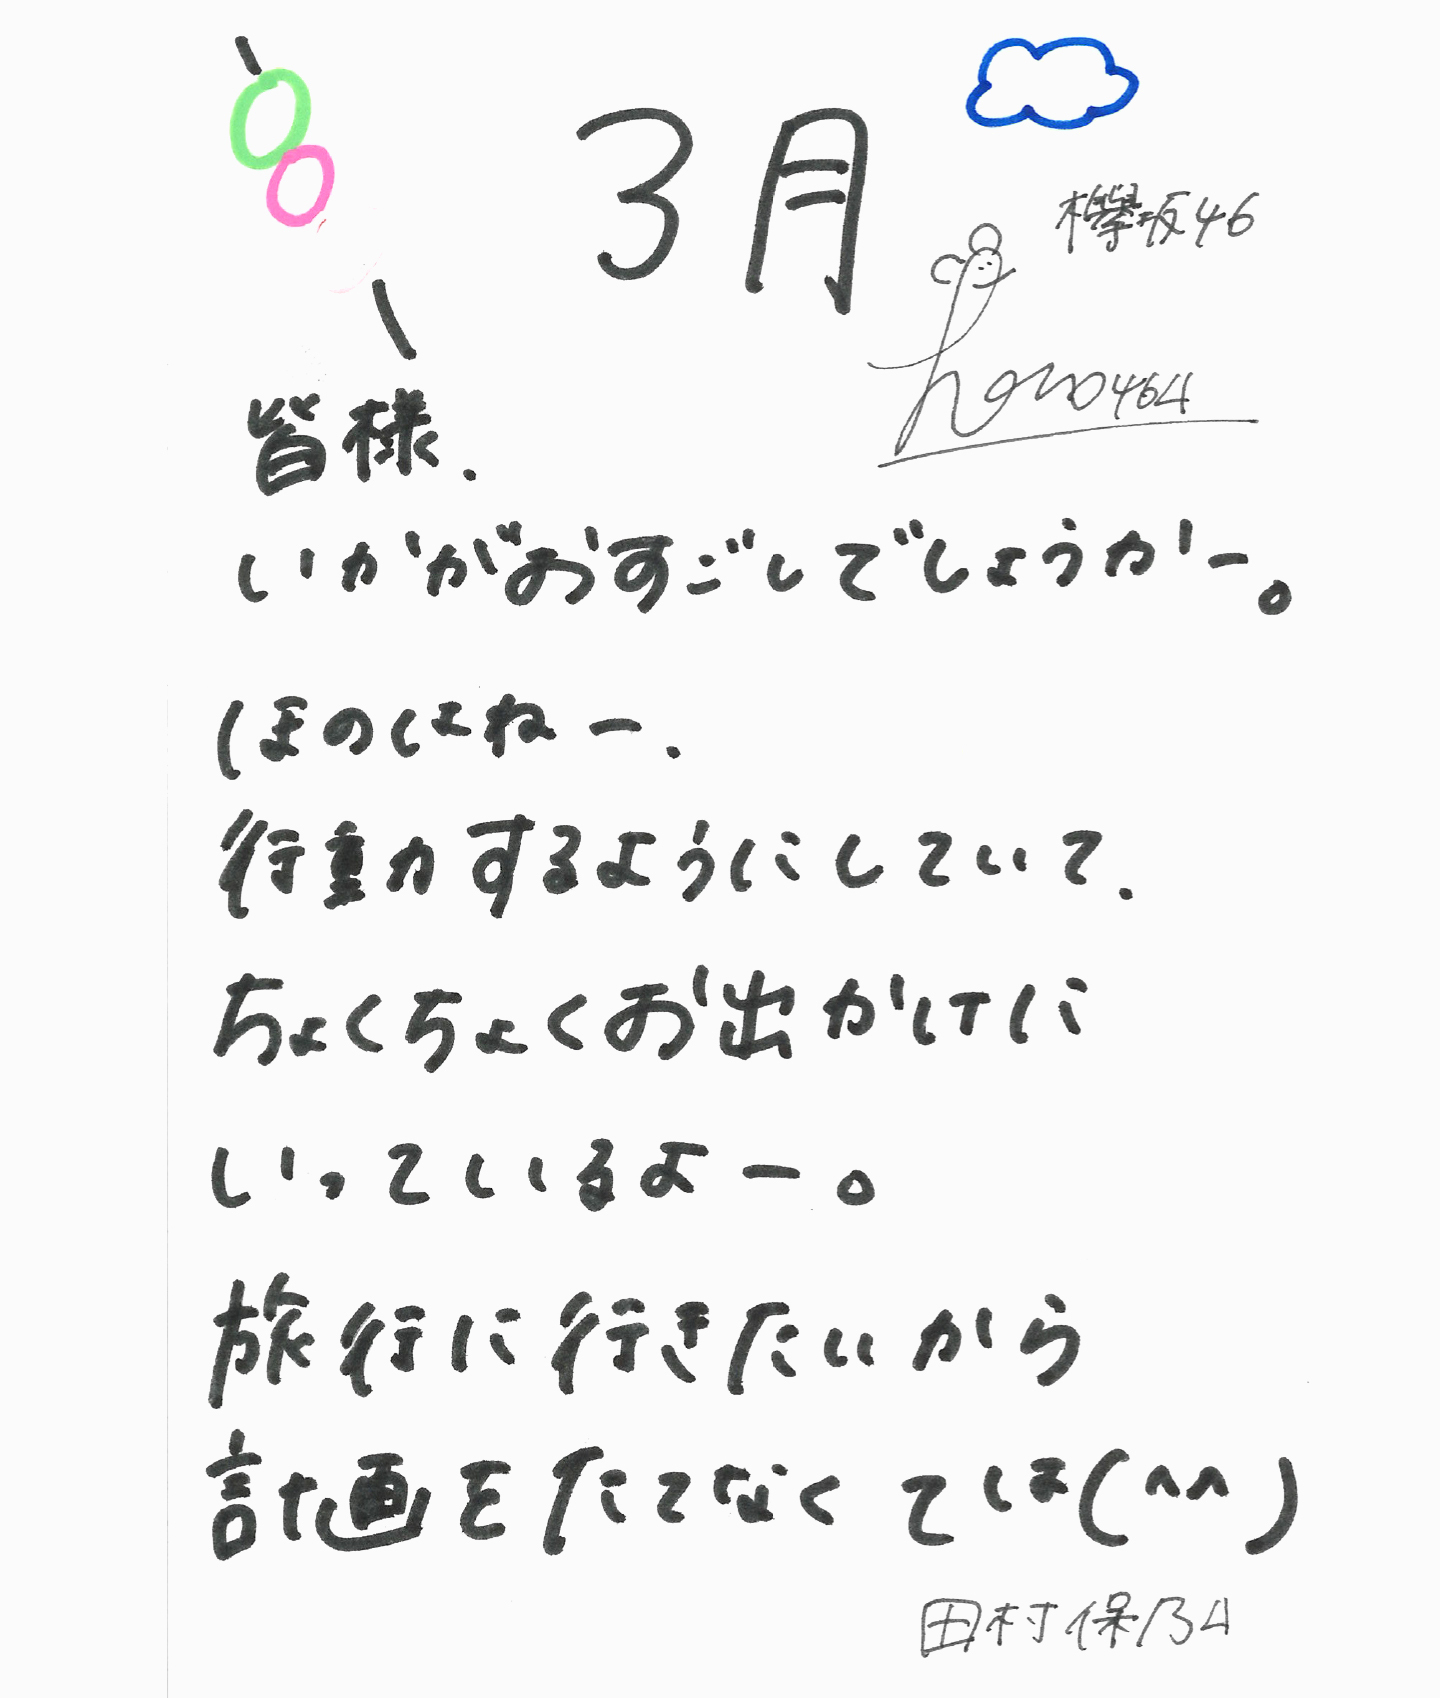 3月
欅坂46
hono464
皆様.
いかがおすごしでしょうかー。
ほのはねー.
行動するようにしていて.
ちょくちょくお出かけに
いっているよー。
旅行に行きたいから
計画をたてなくてはほ(^^)
田村保乃4